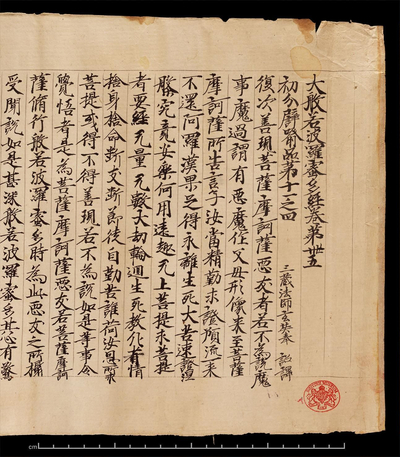 大般若波羅蜜多經卷第卌五
初分譬喻品第十一之四
三藏法師玄奘奉 詔譯
復次善現菩薩摩訶薩惡友者若不為說魔
事魔過謂有惡魔作父母形像來至菩薩
摩訶薩所告言子汝當精勤求證預流一來
不還阿羅漢果足得永離生死大苦速證涅
槃究竟安樂何用遠趣无上菩提求菩提
者要經无量无數大劫輪迴生死教化有情
捨身捨命斷支斷節徒自勤苦誰荷汝恩所求
菩提或得不得善現若不為說如是等事令
覺悟者是為菩薩摩訶薩惡友若菩薩摩訶
薩脩行般若波羅蜜多時為此惡友之所攝
受聞說如是甚深般若波羅蜜多其心有驚
cm